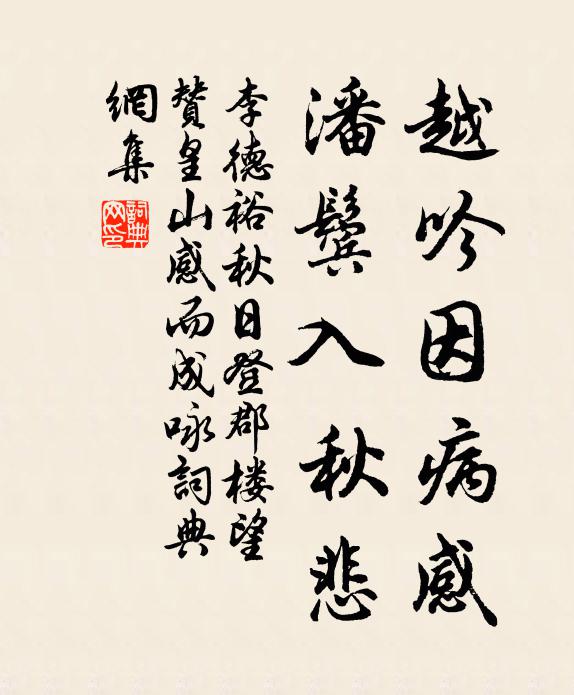 越吟因病感
潘鬓入秋悲
李德裕秋日登郡楼望
贊皇山感而成咏詞典
網集
詞典網印